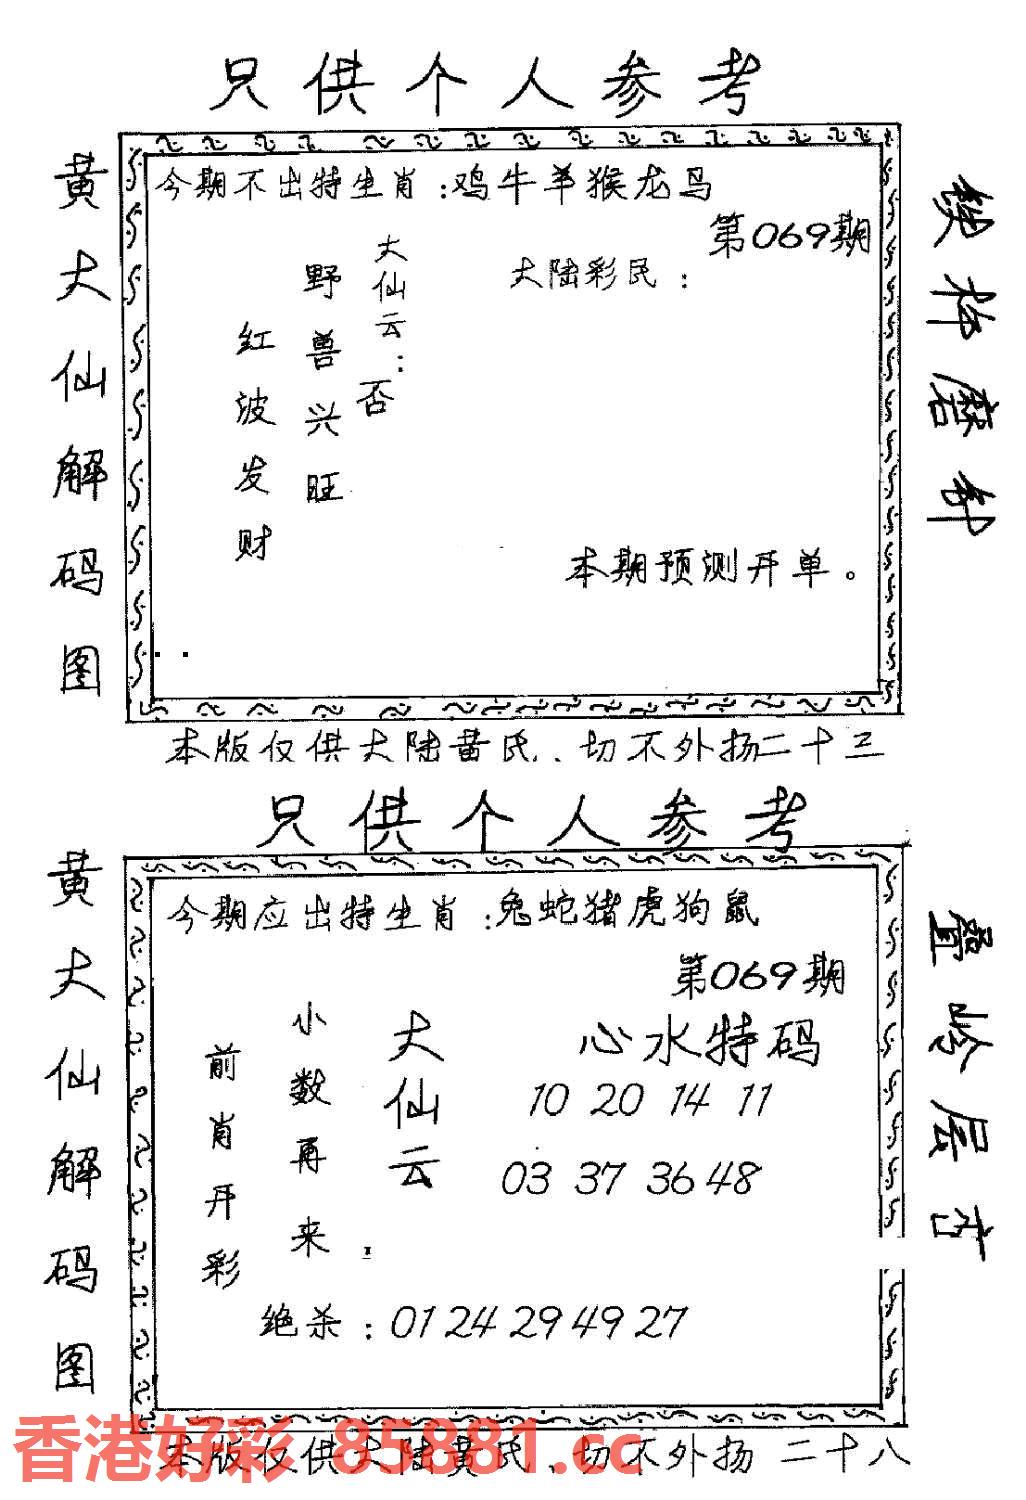 只供个人参考
黄大仙解码图
今期不出特生肖:鸡牛羊猴龙马
第069期
大陆彩民:
大仙云:
否
野兽兴旺
红波发财
本期预测开单。
本版仅供大陆黄氏、切不外扬二十三
只供个人参考
黄大仙解码图
今期应出特生肖:兔蛇猪虎狗鼠
第069期
心水特码
大仙云
小数再来
前肖开彩
10 20 14 11
03 37 36 48
绝杀:01 24 29 49 27
香港好彩 85881.cc
本版仅供大陆黄氏、切不外扬 二十八